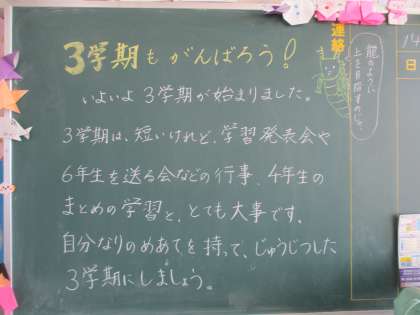 3学期もがんばろう!
いよいよ3学期が始まりました。
3学期は、短いけれど、学習発表会や
6年生を送る会などの行事、4年生の
まとめの学習と、とても大事です。
自分なりのめあてを持って、じゅうじつした
3学期にしましょう。
連絡
龍のように
上を目指すのじゃ。
14
日